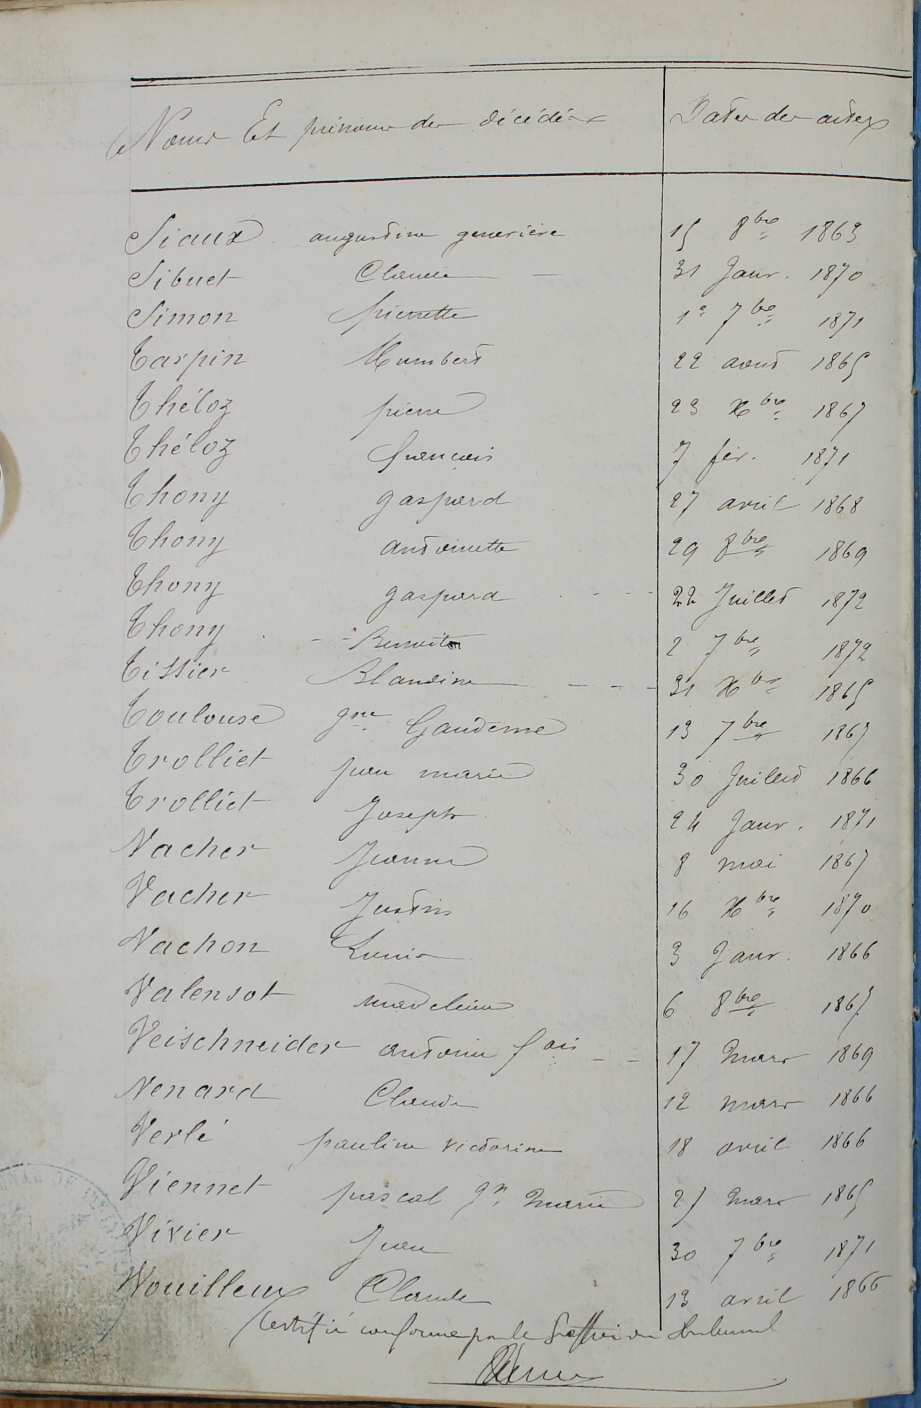 Noms Et prénoms des décédés Dates des actes
Siaux augustine geneviève 15 8bre 1863
Sibuet Claude 31 Janv. 1870
Simon pierrette 1er 7bre 1871
Tarpin Humbert 22 août 1865
Théloz pierre 23 Xbre 1867
Théloz françois 7 fév. 1871
Thony gaspard 27 avril 1868
Thony antoinette 29 8bre 1869
Thony gaspard 22 Juillet 1872
Thony Benoite 2 7bre 1872
Tissier Blandine 31 Xbre 1865
Toulouse 13 7bre 1867
Trolliet jean marie 30 Juillet 1866
Trolliet Joseph 24 Janv. 1871
Vacher Jeanne 8 mai 1867
Vacher Justin 16 Xbre 1870
Vachon 3 Janv. 1866
Valensot madeleine 6 8bre 1867
Veischneider antoine fois 17 Mars 1869
Venard Claude 12 mars 1866
Verlé pauline victorine 18 avril 1866
Viennet pascal Jn Marie 25 Mars 1865
Vivier Jean 30 7bre 1871
Vouilleux Claude 13 avril 1866
Certifié conforme par le Greffier du tribunal